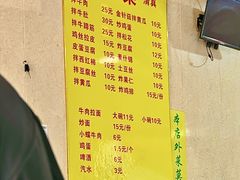 菜 清真
拌牛肉 25元 金针菇拌黄瓜
拌牛肚 30元 炒鸡蛋 10元
拌牛蹄筋 25元 拌花生 10元
鸡丝拉皮 15元 炸豆腐 10元
皮蛋豆腐 12元 青椒 10元
拌西红柿 10元 土豆丝 10元
拌豆腐丝 10元 炸果仁 10元
拌黄瓜 10元 炒鸡排 15元
牛肉拉面 大碗11元 小碗10元
炒面 15元/份
小碟牛肉 6元/份
鸡蛋 1.5元/个
啤酒 6元
汽水 3元
本店外菜莫